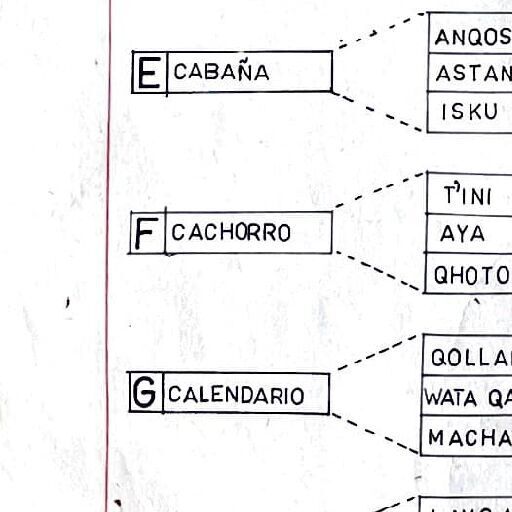 E CABAÑA
ANQOS
ASTAN
ISKU
F CACHORRO
T'INI
AYA
QHOTO
G CALENDARIO
QOLLA
WATA QA
MACHA